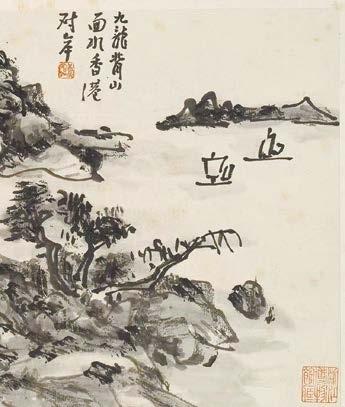 九龍背山
面水香港
對岸